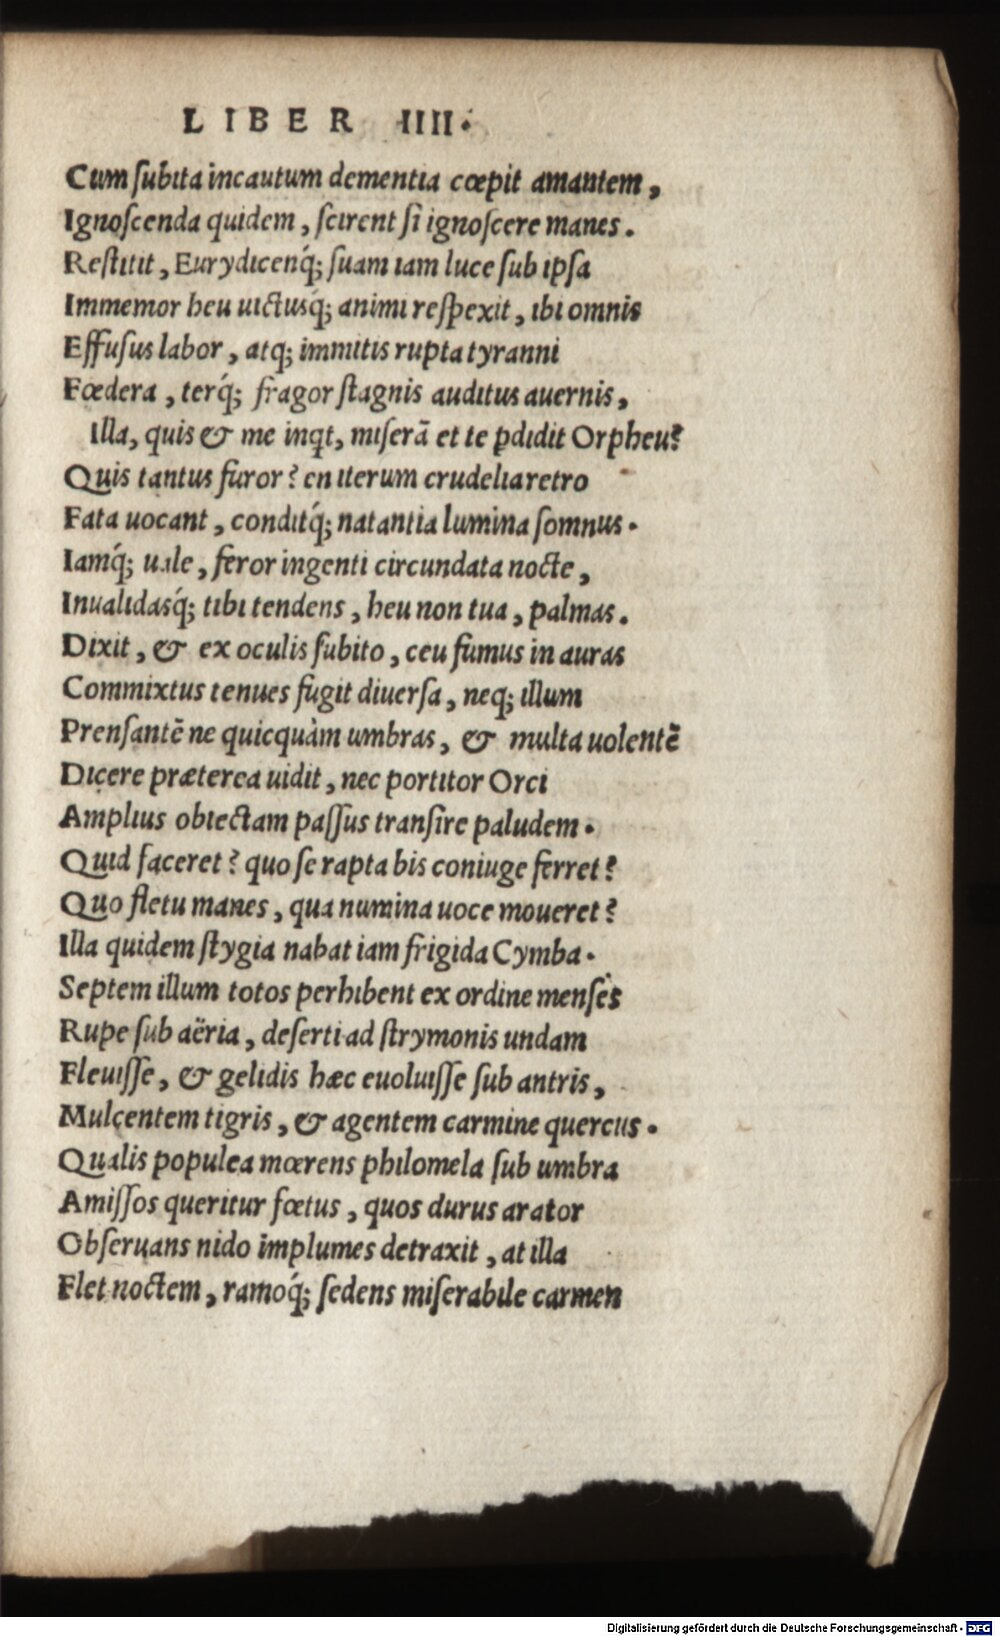 LIBER IIII.
Cum ſubita incautum dementia cœpit amantem,
Ignoſcenda quidem, ſcirent ſi ignoſcere manes.
Reſtitit, Eurydicenq́; ſuam iam luce ſub ipſa
Immemor heu uictusq́; animi reſpexit, ibi omnis
Effuſus labor, atq; immitis rupta tyranni
Fœdera, terq́; fragor ſtagnis auditus auernis,
Illa, quis & me inqt, miſerā et te ꝑdidit Orpheu?
Quis tantus furor? en iterum crudelia retro
Fata uocant, conditq́; natantia lumina ſomnus.
Iamq́; uale, feror ingenti circundata nocte,
Inualidasq́; tibi tendens, heu non tua, palmas.
Dixit, & ex oculis ſubito, ceu fumus in auras
Commixtus tenues fugit diuerſa, neq; illum
Prenſantē ne quicquàm umbras, & multa uolentē
Dicere præterea uidit, nec portitor Orci
Amplius obiectam paſſus tranſire paludem.
Quid faceret? quo ſe rapta bis coniuge ferret?
Quo fletu manes, qua numina uoce moueret?
Illa quidem ſtygia nabat iam frigida Cymba.
Septem illum totos perhibent ex ordine menſès
Rupe ſub aëria, deſerti ad ſtrymonis undam
Fleuiſſe, & gelidis hæc euoluiſſe ſub antris,
Mulcentem tigris, & agentem carmine quercus.
Qualis populea mœrens philomela ſub umbra
Amiſſos queritur fœtus, quos durus arator
Obſeruans nido implumes detraxit, at illa
Flet noctem, ramoq́; ſedens miſerabile carmen
Digitalisierung gefördert durch die Deutsche Forschungsgemeinschaft - DFG